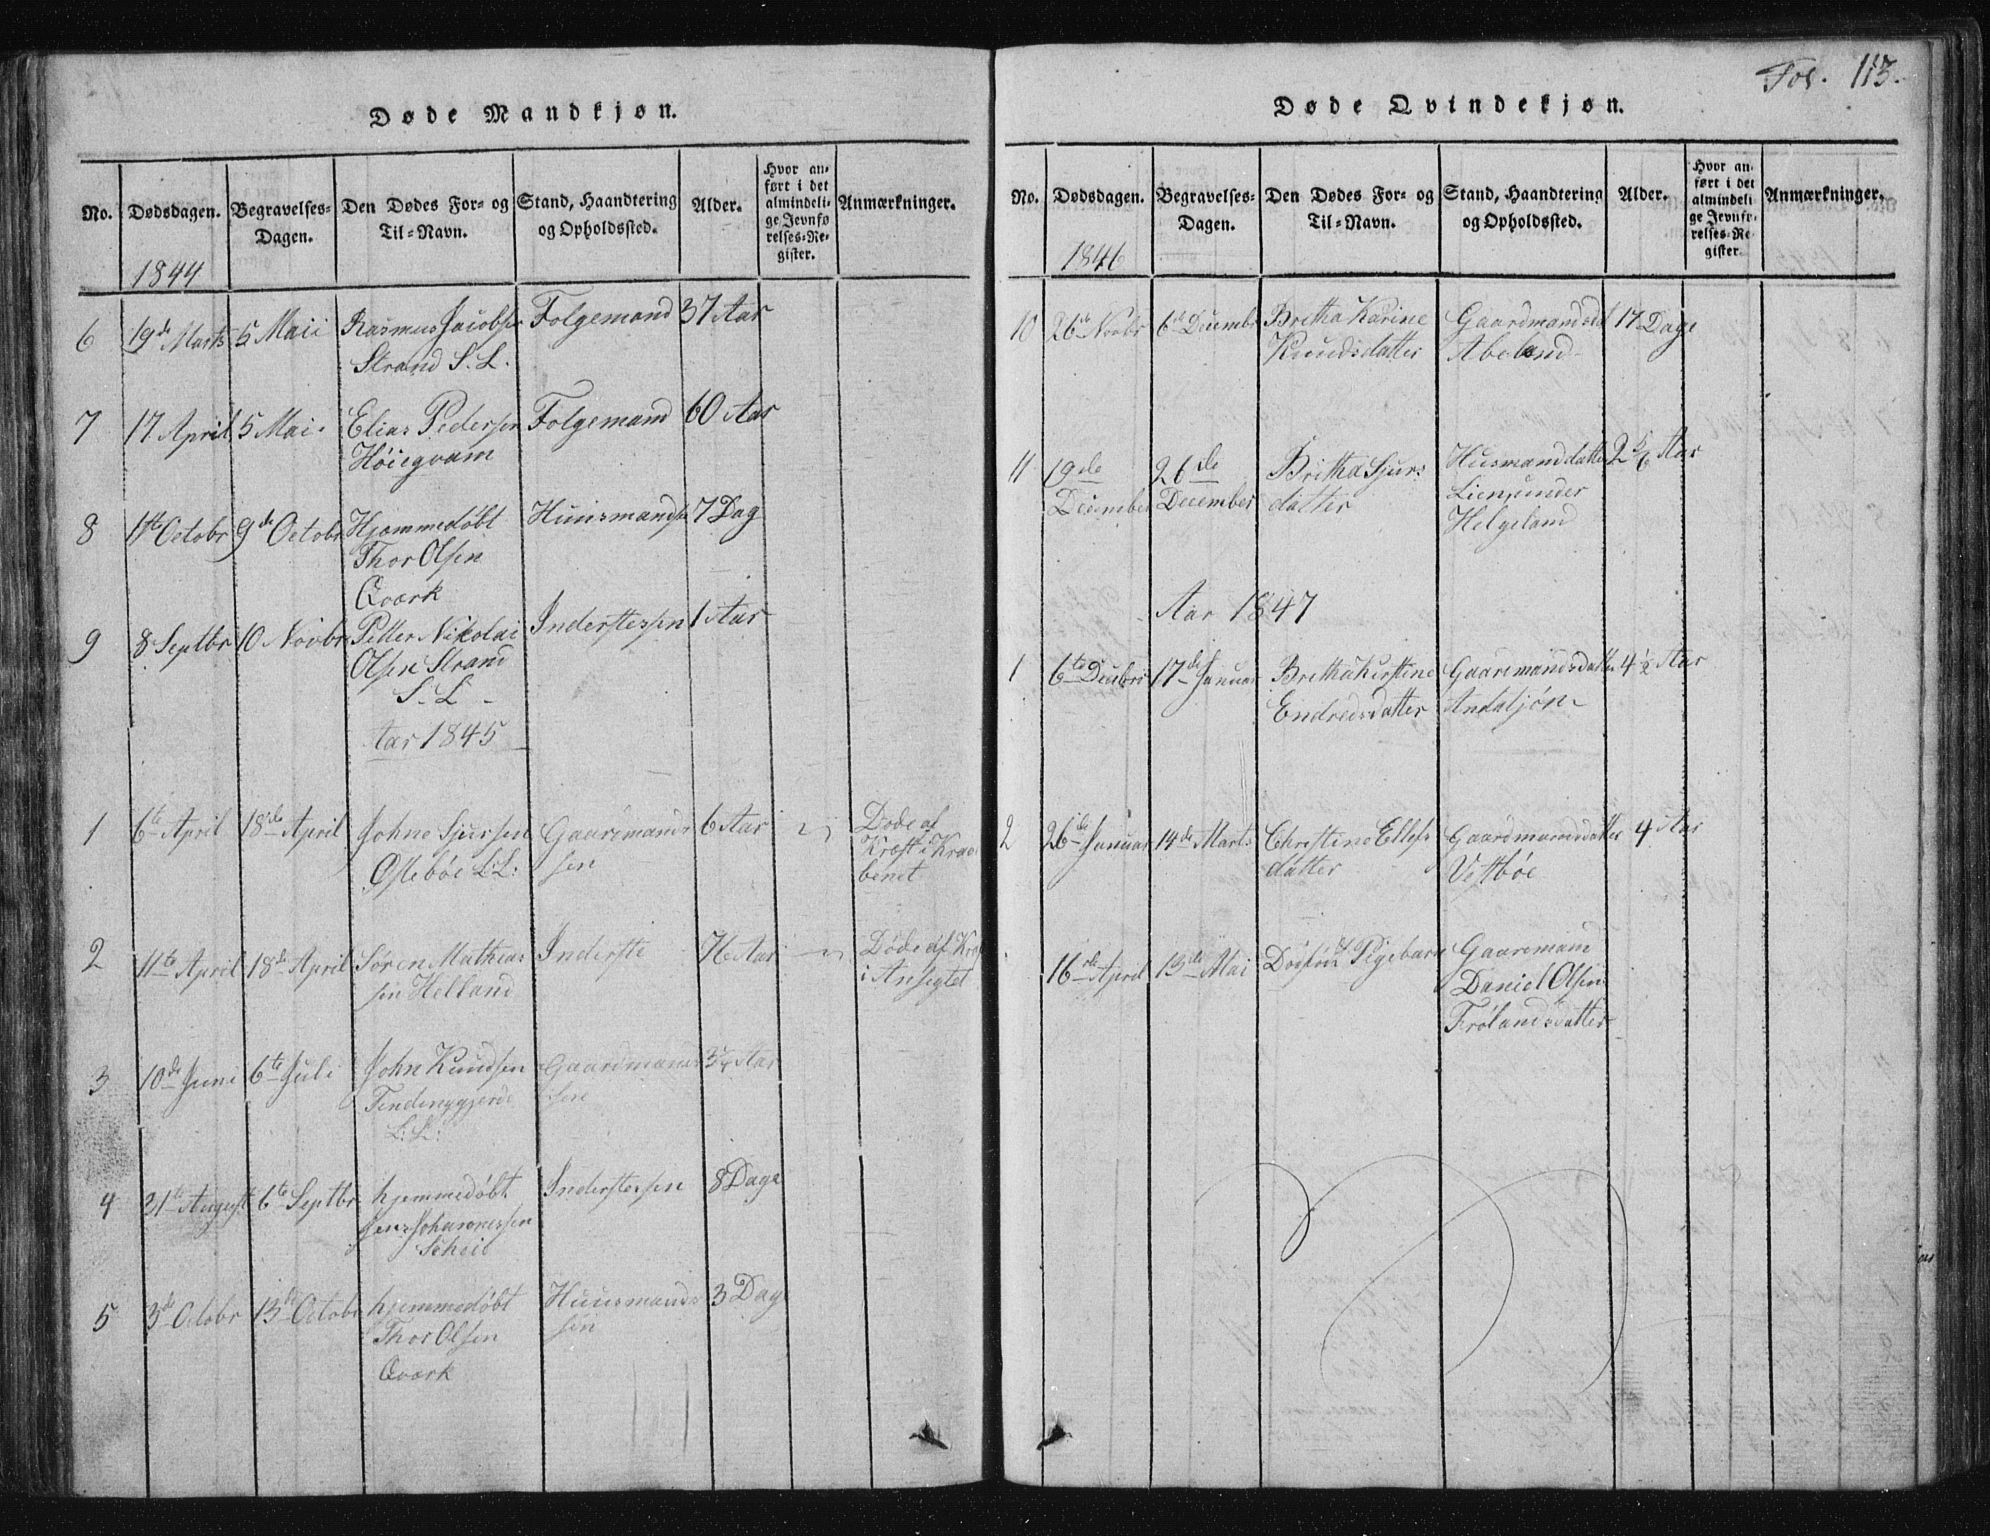 Fol. 113.
Døde Mandkjøn.
No. Dødsdagen. Begravelses-Dagen. Den Dødes For- og Til-Navn. Stand, Haandtering og Opholdssted. Alder. Hvor anført i det almindelige Jevnførelses-Register. Anmærkninger.
1844
6 19de Marts 5 Maii Rasmus Jacobsen Folgemand 37 Aar
Strand S. L.
7 17 April 5 Mai Elias Pedersen Folgemand 60 Aar
Høiegvam
8 1ste Octobr 9de Octobr Hjemmedøbt Huusmandss 7 Dag
Thor Olsen
Qværk
9 8 Septbr 10 Novbr Petter Nikolai Inderstessøn 1 Aar
Olsen Strand
S. L.
Aar 1845
1 6te April 18de April Johne Sjursen Gaardmands 6 Aar Døde af
Østebøe L.L. søn Kræft i
benet
2 11te April 18de April Søren Mathias Inderste 76 Aar Døde af Kræft
sen Helland i Ansigtet
3 10de Juni 6te Juli John Knudsen Gaardmands Aar
L: L:
4 31te August 6te Septbr hjemmedøbt Inderstessøn 8 Dage
Jens Johannessen
5 3de Octobr 13de Octobr hjemmedøbt Huusmands 3 Dag
Thor Olsen søn
Qværk
Døde Qvindekjøn.
No. Dødsdagen. Begravelses-Dagen. Den Dødes For- og Til-Navn. Stand, Haandtering og Opholdssted. Alder. Hvor anført i det almindelige Jevnførelses-Register. Anmærkninger.
1846
10 26de Novbr 6te Decembr Britha Karine Gaardmandsd 17 Dage
Knudsdatter Abeland
11 19de 26de Britha Sjurs Husmanddatter 2 Aar
December December datter under
Helgeland
Aar 1847
1 6te Decbr 17de Januar Britha Kirstine Gaardmandsdatter 4½ Aar
Endredsdatter
2 26de Januar 14de Marts Christine Ellefs Gaardmandsdatter 4 Aar
datter Vestbøe
16de April 13de Mai Dødfødt Pigebarn Gaardmand
Daniel Olsen
Frølandsdatter